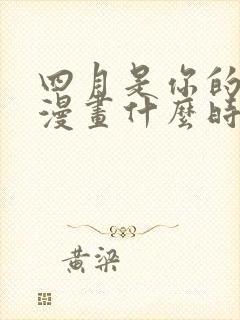 四月是你的
漫畫什麼時
黃梁